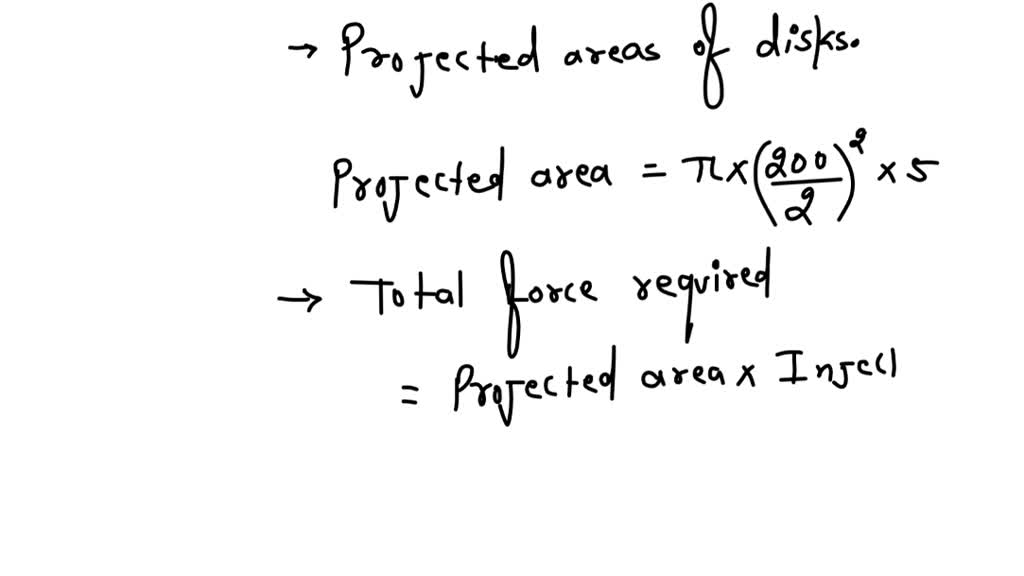 → Projected areas of disks.
Projected area = π × (200/2)² × 5
→ Total force required
= Projected area × Inject